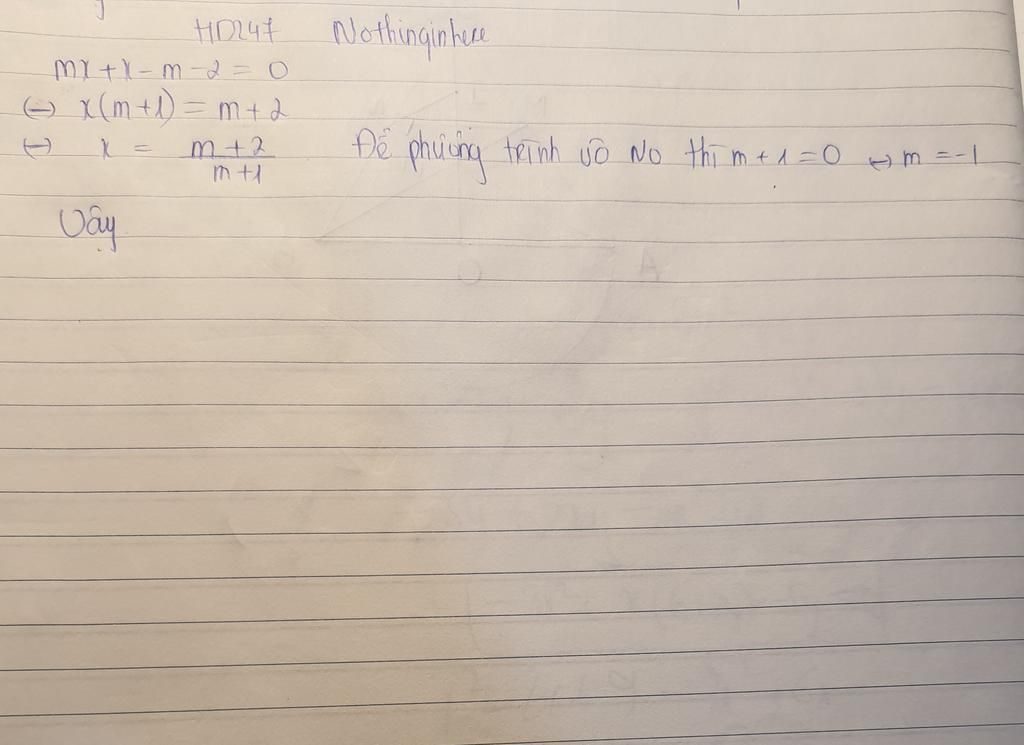 HD247 Nothinginhere
mx + x - m - 2 = 0
⇔ x(m+1) = m + 2
⇔ x = \frac{m+2}{m+1} Để phương trình vô No thì m + 1 = 0 ⇔ m = -1
Vậy